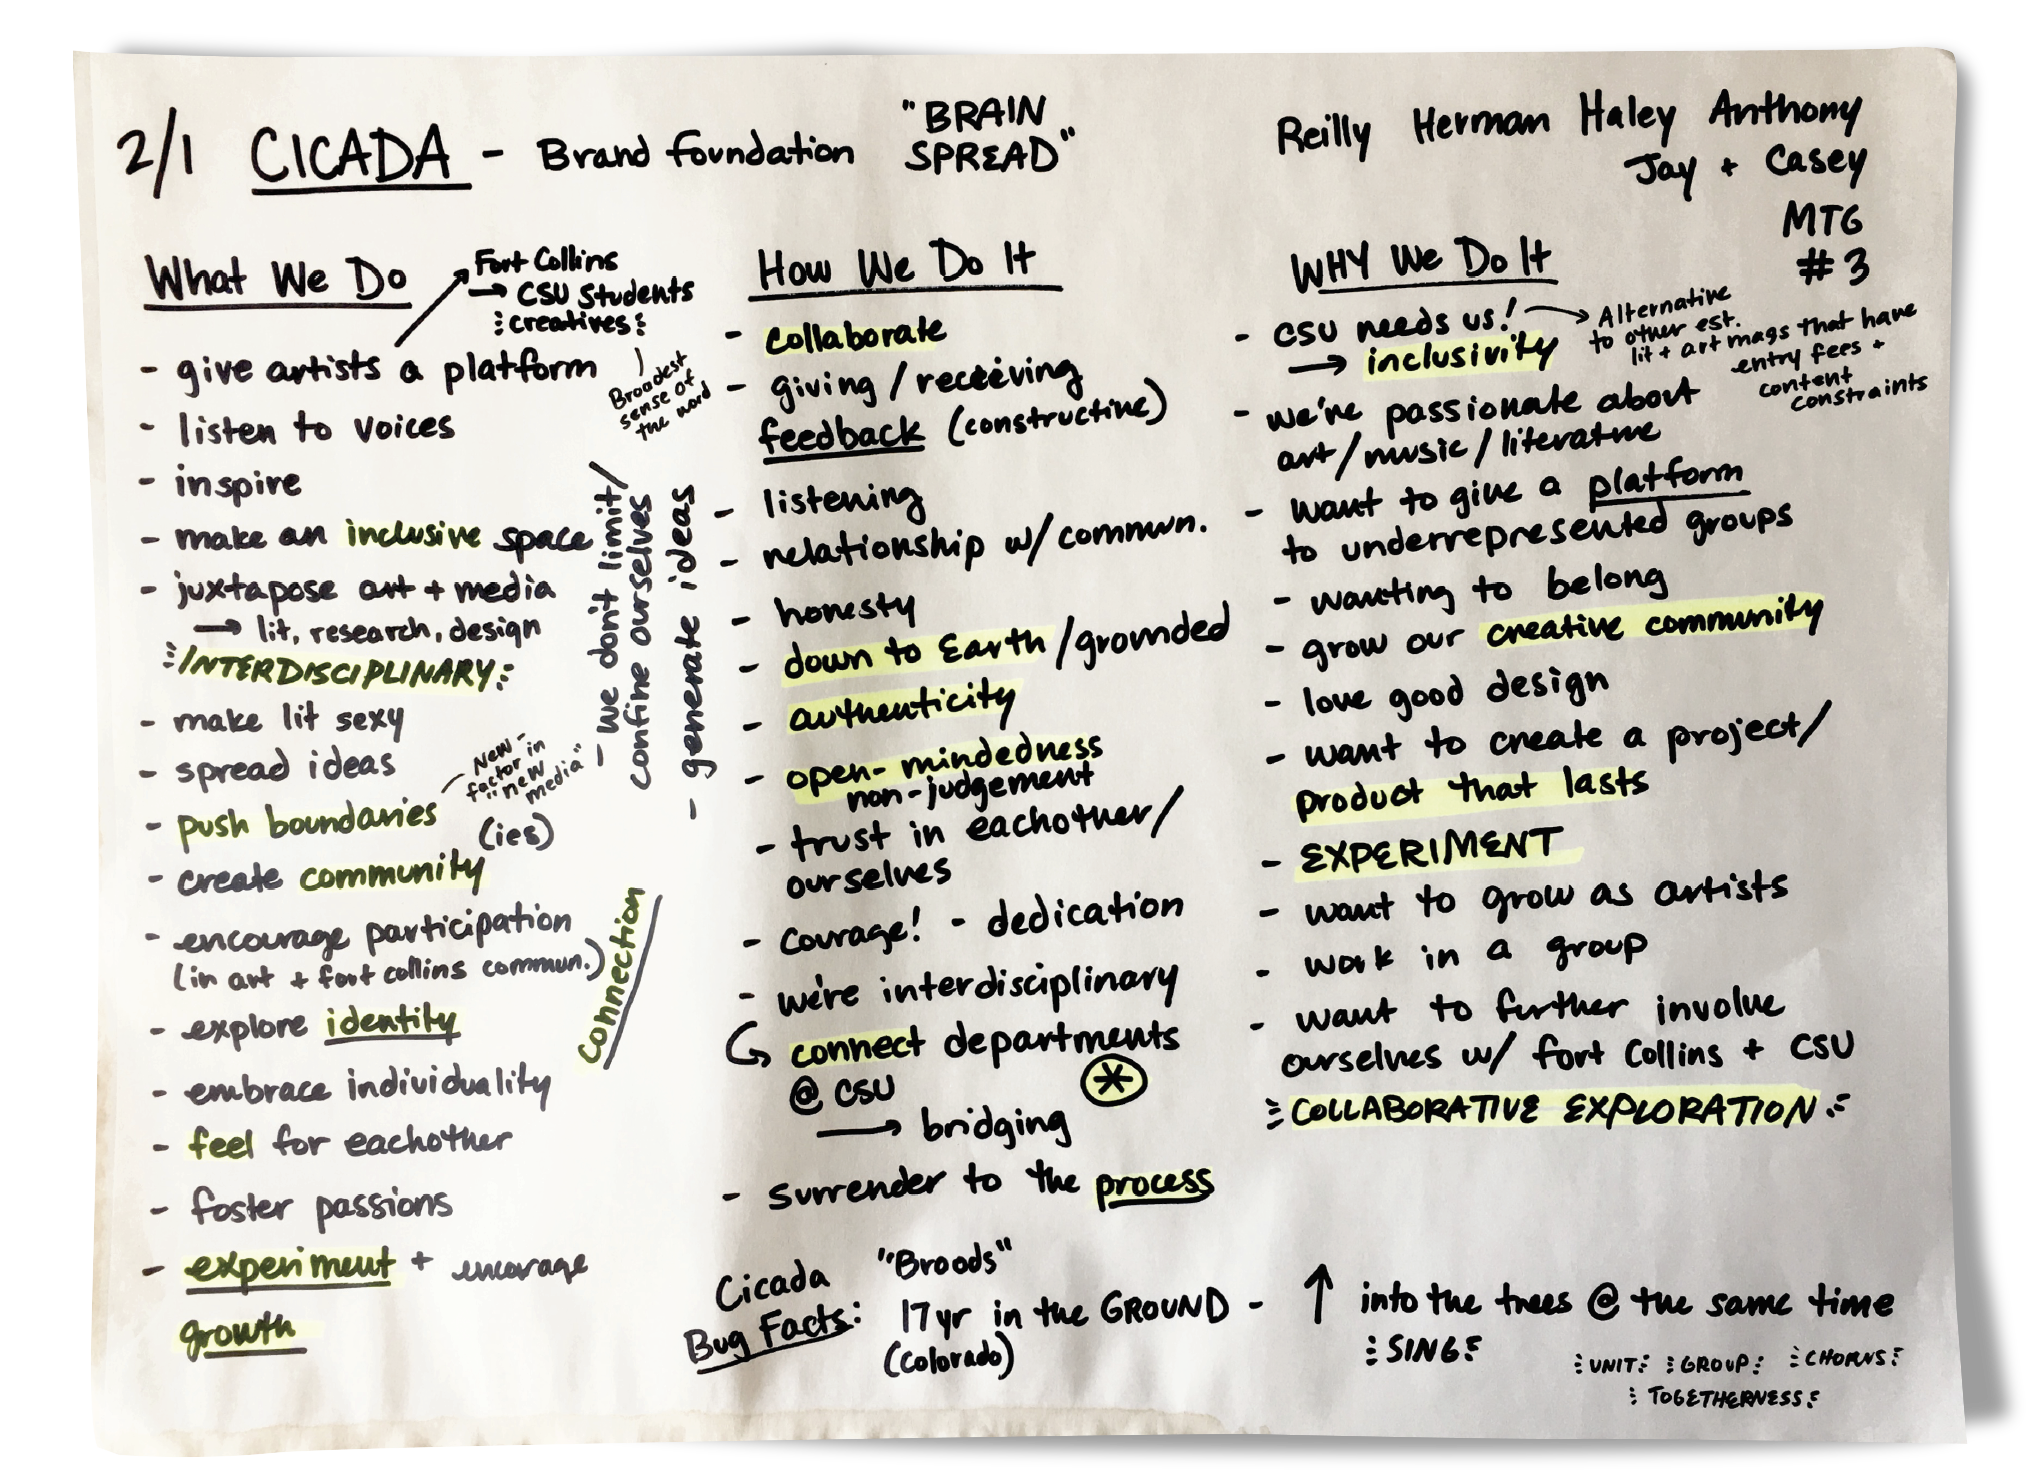 2/1 CICADA - Brand foundation "BRAIN
SPREAD"
Reilly Herman Haley Anthony
Jay + Casey
MTG
#3
What We Do
Fort Collins
→ CSU Students
creatives
Broadest
sense of
the word
- give artists a platform
- listen to voices
- inspire
- make an inclusive space
- juxtapose art + media
→ lit, research, design
INTERDISCIPLINARY
- make lit sexy
- spread ideas
- push boundaries
New-
factor in
"new
media"
- create community
(ies)
- encourage participation
(in art + fort collins commun.)
- explore identity
- embrace individuality
- feel for eachother
- foster passions
- experiment + encorage
growth
- we don't limit/
confine ourselves
- generate ideas
Connection
How We Do It
- collaborate
- giving / receiving
feedback (constructive)
- listening
- relationship w/ commun.
- honesty
- down to Earth / grounded
- authenticity
- open-mindedness
non-judgement
- trust in eachother/
ourselves
- courage! - dedication
- we're interdisciplinary
connect departments
@ CSU
→ bridging
- surrender to the process
WHY We Do It
- CSU needs us!
→ inclusivity
Alternative
to other est.
lit + art mags that have
entry fees +
content
constraints
- we're passionate about
art/music/literature
- want to give a platform
to underrepresented groups
- wanting to belong
- grow our creative community
- love good design
- want to create a project/
product that lasts
- EXPERIMENT
- want to grow as artists
- work in a group
- want to further involve
ourselves w/ fort Collins + CSU
COLLABORATIVE EXPLORATION
Cicada
Bug Facts:
"Broods"
17yr in the GROUND - ↑ into the trees @ the same time
(Colorado)
SING
UNIT GROUP CHORUS
TOGETHERNESS